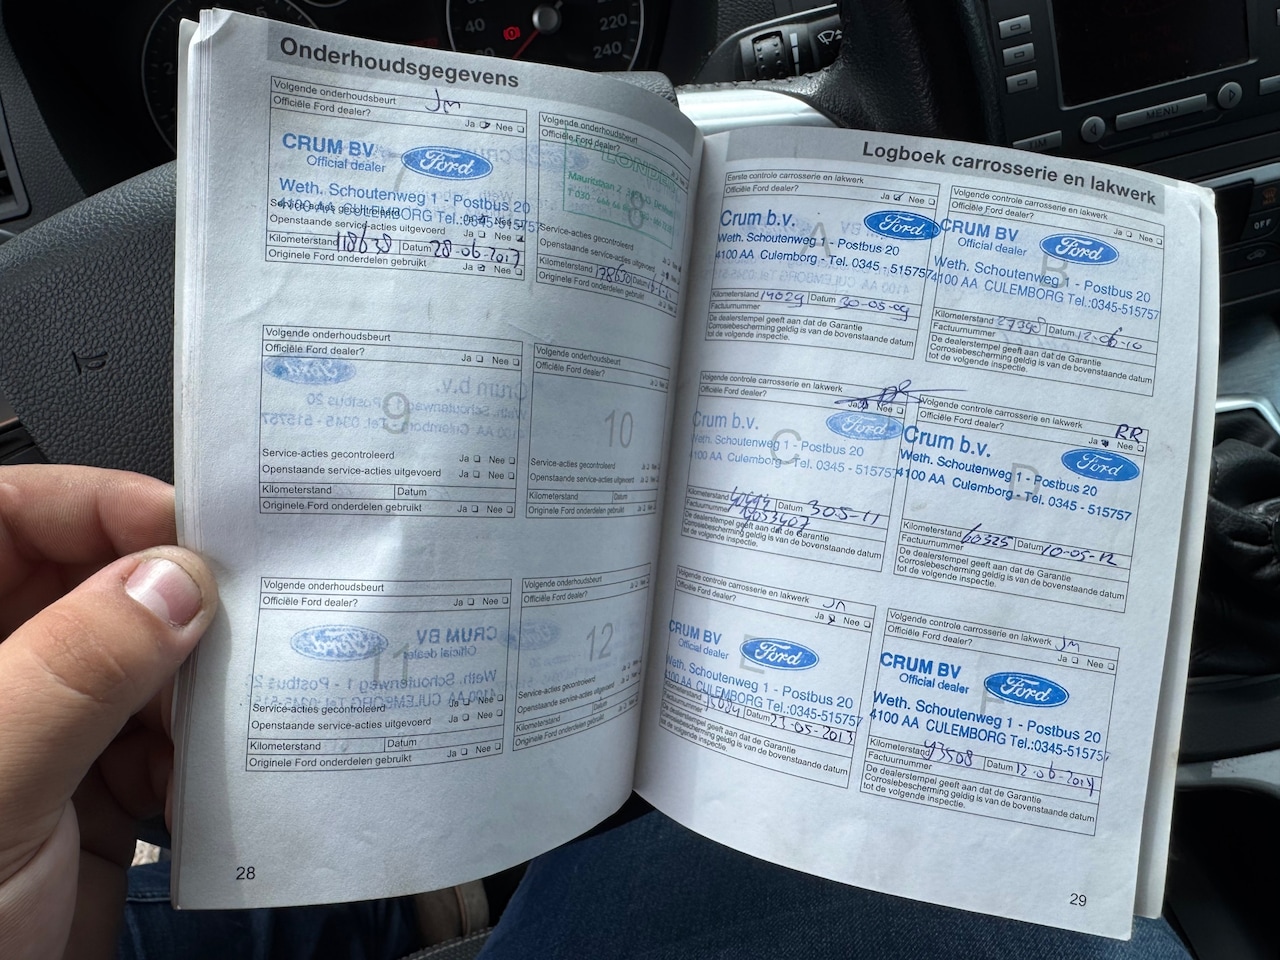 Onderhoudsgegevens
Volgende onderhoudsbeurt Jm
Officiële Ford dealer?
Ja Nee
CRUM BV
Official dealer
Ford
Weth. Schoutenweg 1 - Postbus 20
4100 AA CULEMBORG Tel.:0345-515757
Service-acties gecontroleerd Ja Nee
Openstaande service-acties uitgevoerd Ja Nee
Kilometerstand 118638 Datum 28-06-2017
Originele Ford onderdelen gebruikt Ja Nee
Volgende onderhoudsbeurt
Officiële Ford dealer?
8
Service-acties gecontroleerd
Openstaande service-acties uitgevoerd
Kilometerstand Datum
Originele Ford onderdelen gebruikt
Volgende onderhoudsbeurt
Officiële Ford dealer?
Ja Nee
9
Service-acties gecontroleerd Ja Nee
Openstaande service-acties uitgevoerd Ja Nee
Kilometerstand Datum
Originele Ford onderdelen gebruikt Ja Nee
Volgende onderhoudsbeurt
Officiële Ford dealer?
10
Service-acties gecontroleerd
Openstaande service-acties uitgevoerd
Kilometerstand Datum
Originele Ford onderdelen gebruikt
Volgende onderhoudsbeurt
Officiële Ford dealer?
Ja Nee
11
Service-acties gecontroleerd Ja Nee
Openstaande service-acties uitgevoerd Ja Nee
Kilometerstand Datum
Originele Ford onderdelen gebruikt Ja Nee
Volgende onderhoudsbeurt
Officiële Ford dealer?
12
Service-acties gecontroleerd
Openstaande service-acties uitgevoerd
Kilometerstand Datum
Originele Ford onderdelen gebruikt
28
Logboek carrosserie en lakwerk
Eerste controle carrosserie en lakwerk
Officiële Ford dealer? Ja Nee
Crum b.v.
Ford
A
Weth. Schoutenweg 1 - Postbus 20
4100 AA Culemborg - Tel. 0345 - 515757
Kilometerstand 14029 Datum 20-05-09
Factuurnummer
De dealerstempel geeft aan dat de Garantie
Corrosiebescherming geldig is van de bovenstaande datum
tot de volgende inspectie.
Volgende controle carrosserie en lakwerk
Officiële Ford dealer?
Ja Nee
CRUM BV
Official dealer
Ford
B
Weth. Schoutenweg 1 - Postbus 20
4100 AA CULEMBORG Tel.:0345-515757
Kilometerstand Datum 12-06-10
Factuurnummer
De dealerstempel geeft aan dat de Garantie
Corrosiebescherming geldig is van de bovenstaande datum
tot de volgende inspectie.
Volgende controle carrosserie en lakwerk
Officiële Ford dealer? Ja Nee
Crum b.v.
Ford
C
Weth. Schoutenweg 1 - Postbus 20
4100 AA Culemborg - Tel. 0345 - 515757
Kilometerstand Datum 305-11
Factuurnummer
De dealerstempel geeft aan dat de Garantie
Corrosiebescherming geldig is van de bovenstaande datum
tot de volgende inspectie.
Volgende controle carrosserie en lakwerk
Officiële Ford dealer? RR
Ja Nee
Crum b.v.
Ford
D
Weth. Schoutenweg 1 - Postbus 20
4100 AA Culemborg - Tel. 0345 - 515757
Kilometerstand 60325 Datum 10-05-12
Factuurnummer
De dealerstempel geeft aan dat de Garantie
Corrosiebescherming geldig is van de bovenstaande datum
tot de volgende inspectie.
Volgende controle carrosserie en lakwerk Jm
Officiële Ford dealer? Ja Nee
CRUM BV
Official dealer
Ford
E
Weth. Schoutenweg 1 - Postbus 20
4100 AA CULEMBORG Tel.:0345-515757
Kilometerstand Datum 21-05-2013
Factuurnummer
De dealerstempel geeft aan dat de Garantie
Corrosiebescherming geldig is van de bovenstaande datum
tot de volgende inspectie.
Volgende controle carrosserie en lakwerk Jm
Officiële Ford dealer?
Ja Nee
CRUM BV
Official dealer
Ford
F
Weth. Schoutenweg 1 - Postbus 20
4100 AA CULEMBORG Tel.:0345-515757
Kilometerstand 93508 Datum 12-06-2014
Factuurnummer
De dealerstempel geeft aan dat de Garantie
Corrosiebescherming geldig is van de bovenstaande datum
tot de volgende inspectie.
29
MENU
OFF
40
20
220
240